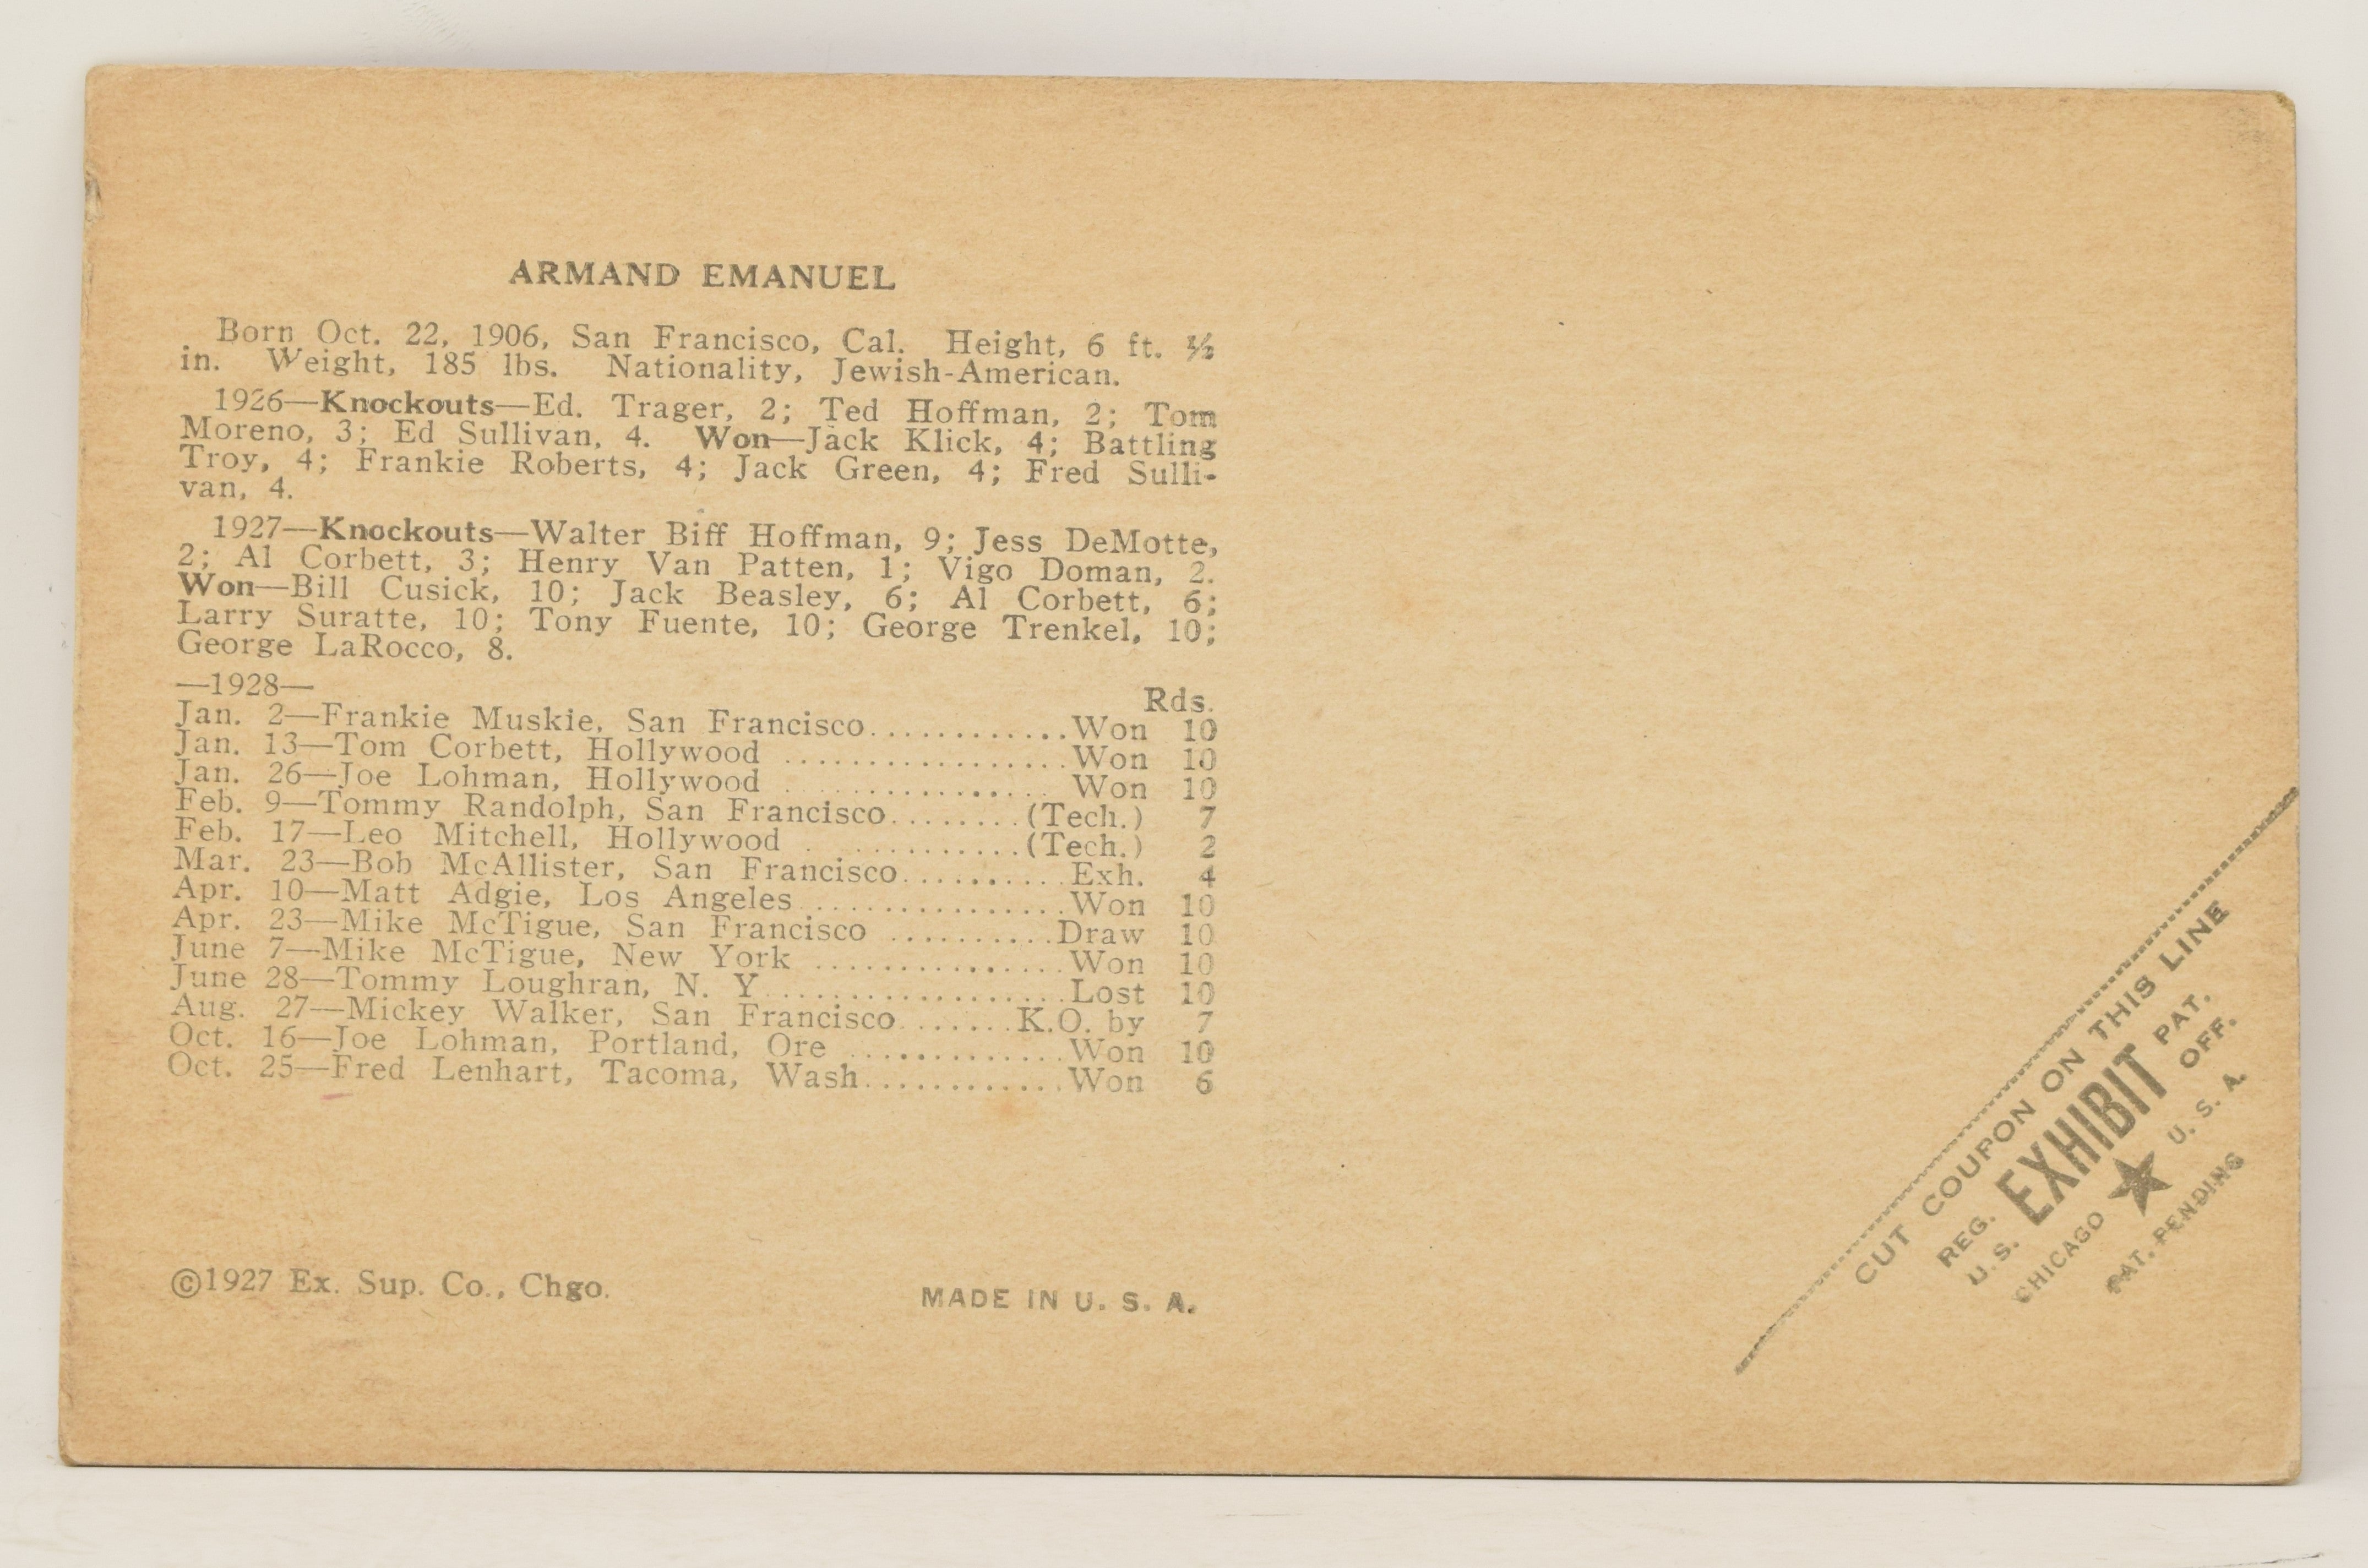 ARMAND EMANUEL
Born Oct. 22, 1906, San Francisco, Cal. Height, 6 ft. ½
in. Weight, 185 lbs. Nationality, Jewish-American.
1926—Knockouts—Ed. Trager, 2; Ted Hoffman, 2; Tom
Moreno, 3; Ed Sullivan, 4. Won—Jack Klick, 4; Battling
Troy, 4; Frankie Roberts, 4; Jack Green, 4; Fred Sulli-
van, 4.
1927—Knockouts—Walter Biff Hoffman, 9; Jess DeMotte,
2; Al Corbett, 3; Henry Van Patten, 1; Vigo Doman, 2.
Won—Bill Cusick, 10; Jack Beasley, 6; Al Corbett, 6;
Larry Suratte, 10; Tony Fuente, 10; George Trenkel, 10;
George LaRocco, 8.
—1928— Rds.
Jan. 2—Frankie Muskie, San Francisco............Won 10
Jan. 13—Tom Corbett, Hollywood .................Won 10
Jan. 26—Joe Lohman, Hollywood ................Won 10
Feb. 9—Tommy Randolph, San Francisco........(Tech.) 7
Feb. 17—Leo Mitchell, Hollywood . ...........(Tech.) 2
Mar. 23—Bob McAllister, San Francisco..........Exh. 4
Apr. 10—Matt Adgie, Los Angeles ................Won 10
Apr. 23—Mike McTigue, San Francisco ..........Draw 10
June 7—Mike McTigue, New York ...............Won 10
June 28—Tommy Loughran, N. Y...................Lost 10
Aug. 27—Mickey Walker, San Francisco.......K.O. by 7
Oct. 16—Joe Lohman, Portland, Ore .............Won 10
Oct. 25—Fred Lenhart, Tacoma, Wash............Won 6
©1927 Ex. Sup. Co., Chgo.
MADE IN U. S. A.
CUT COUPON ON THIS LINE
REG. EXHIBIT PAT.
U.S. OFF.
CHICAGO ★ U. S. A.
PAT. PENDING